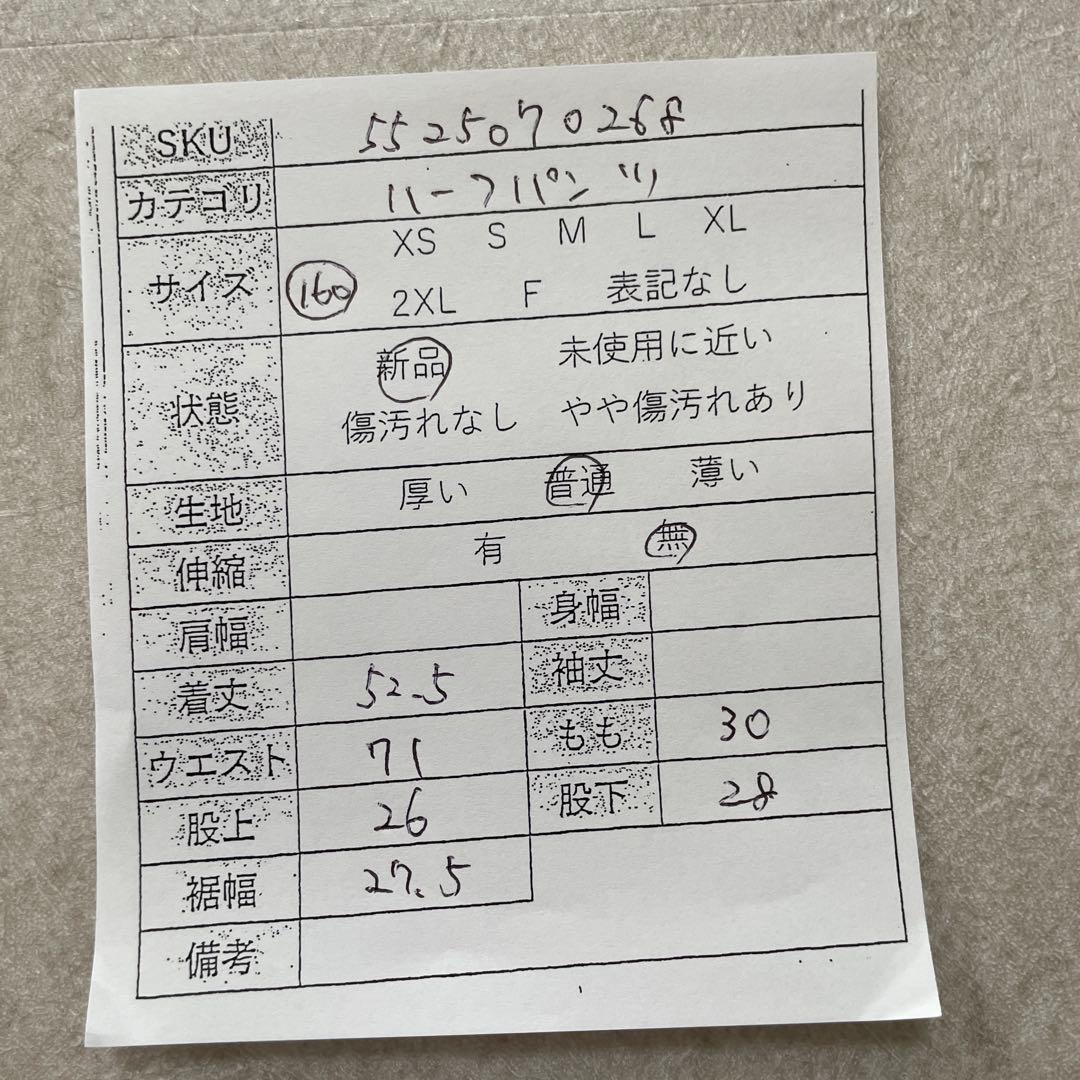 SKU 5525070268
カテゴリ ハーフパンツ
XS S M L XL
サイズ 160 2XL F 表記なし
新品 未使用に近い
状態
傷汚れなし やや傷汚れあり
生地 厚い 普通 薄い
伸縮 有 無
肩幅 身幅
着丈 52.5 袖丈
ウエスト 71 もも 30
股上 26 股下 28
裾幅 27.5
備考